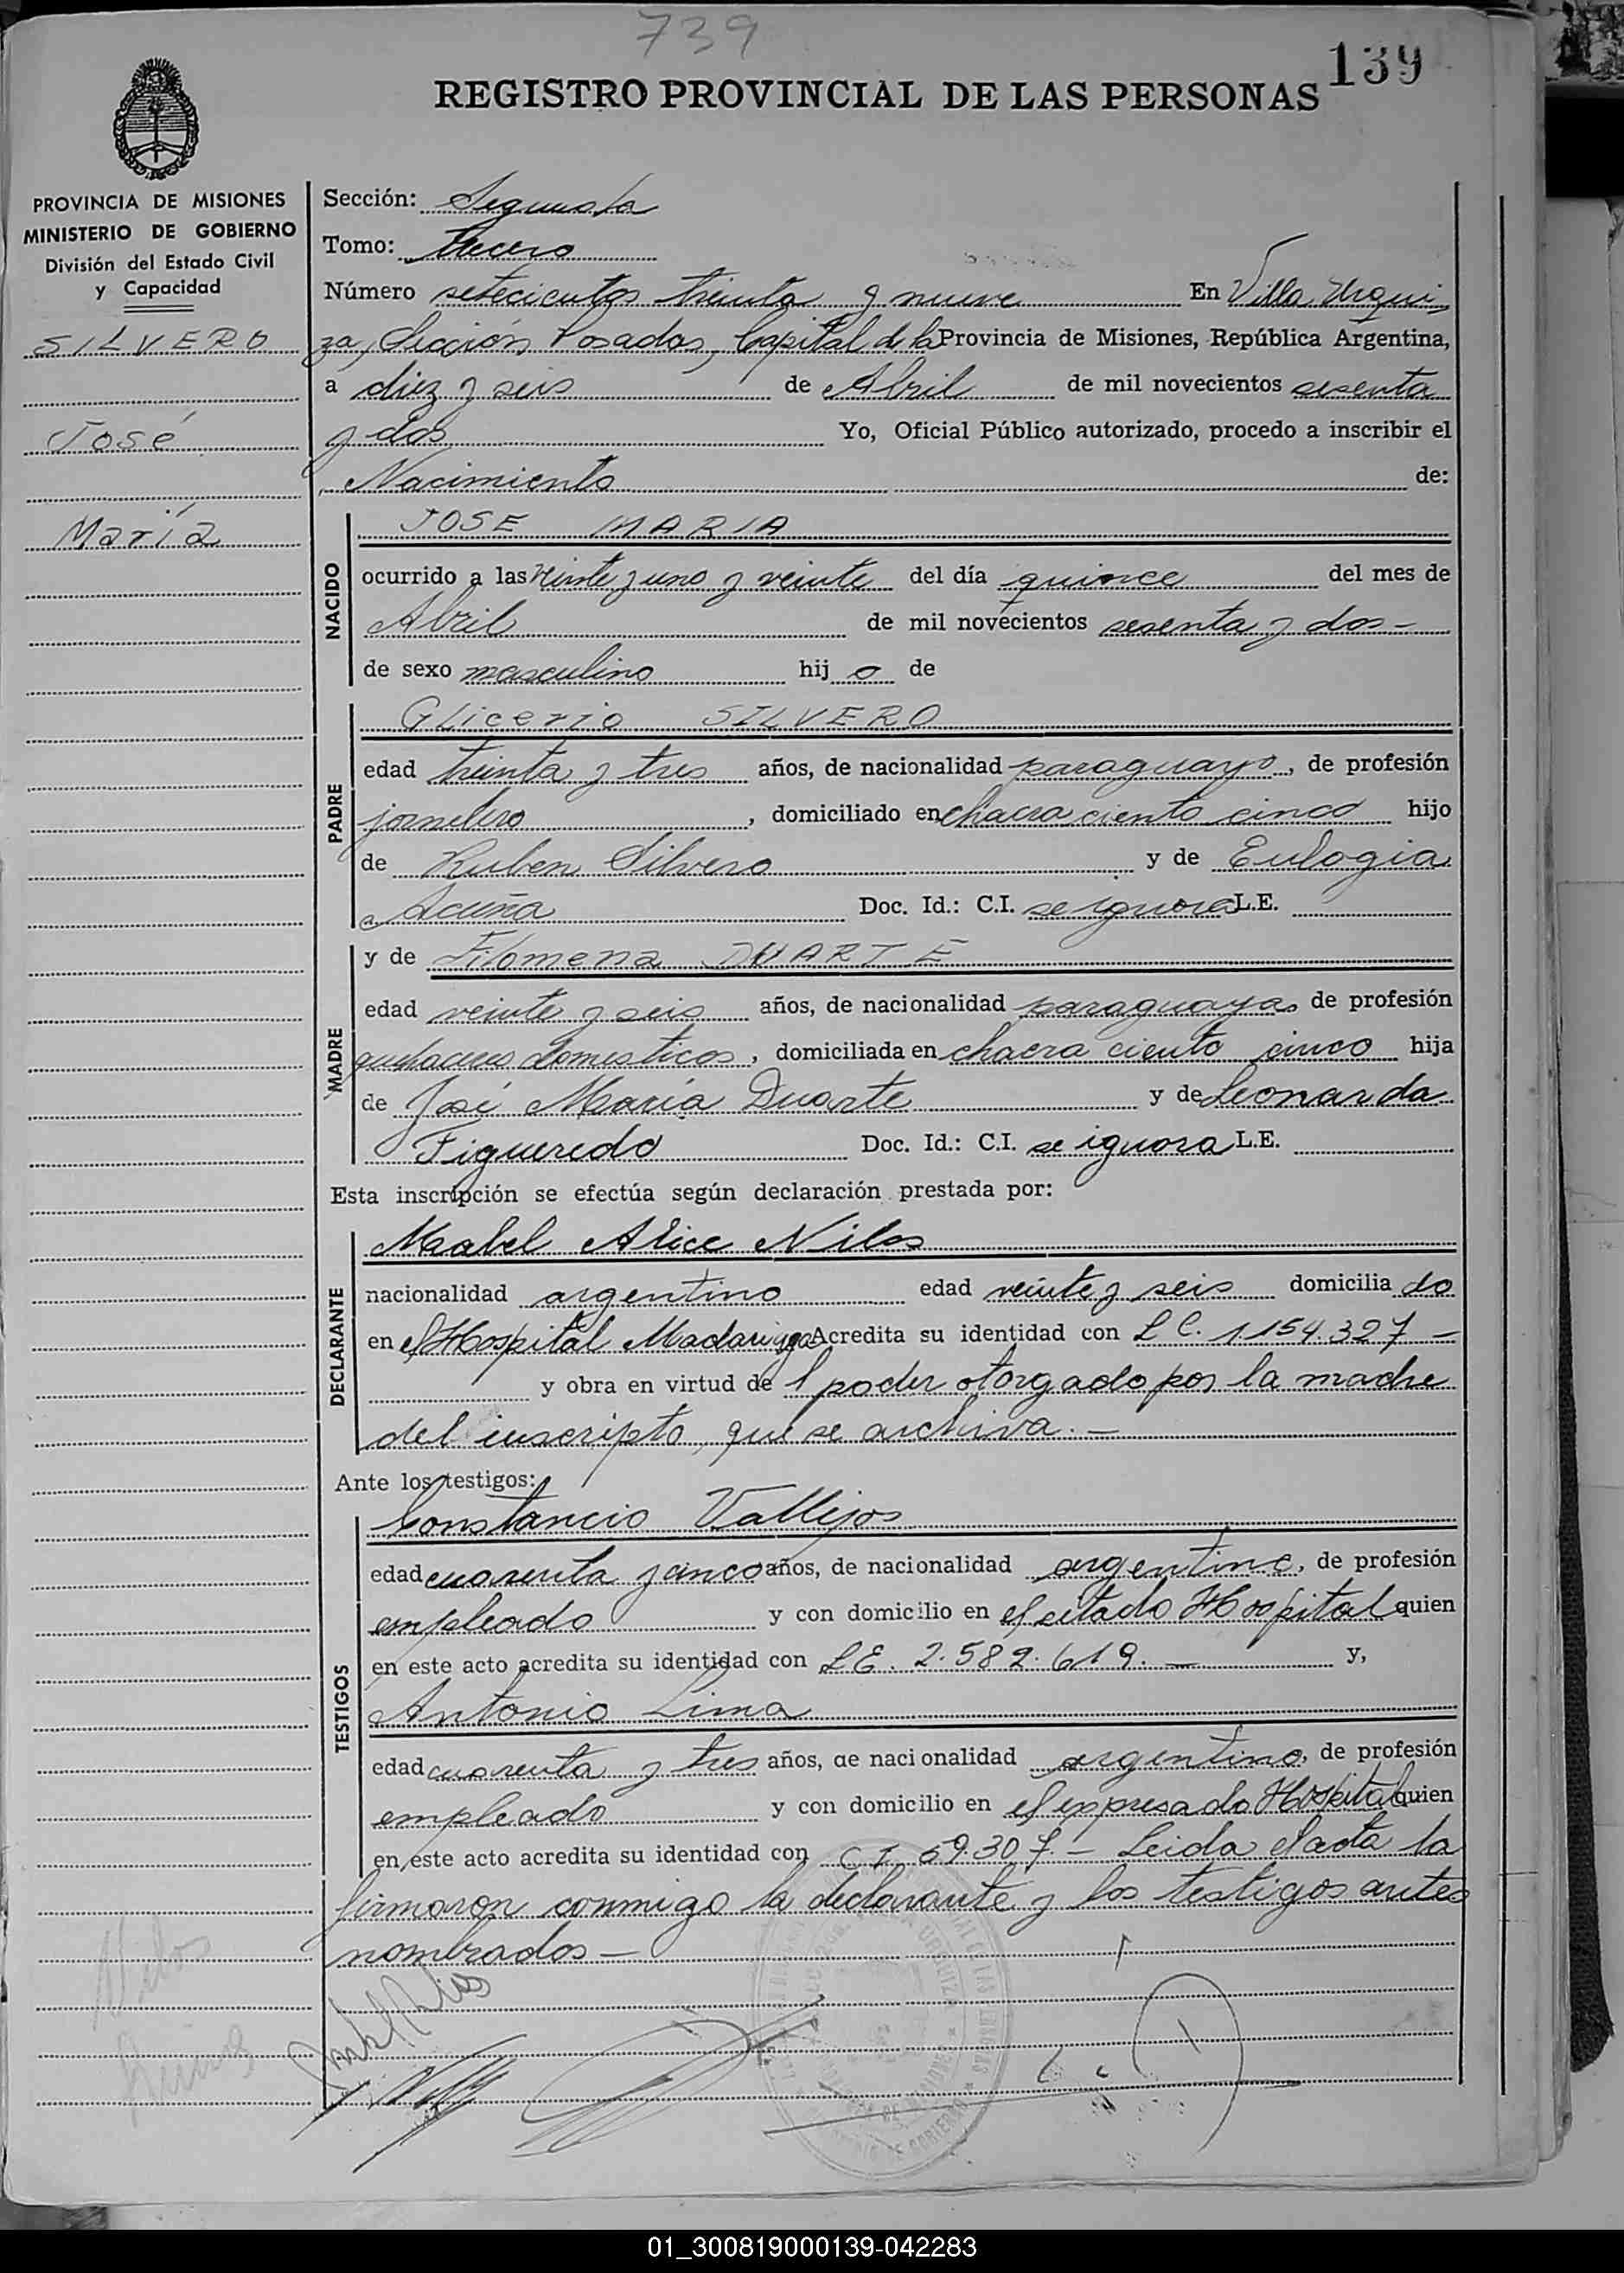 739
139
REGISTRO PROVINCIAL DE LAS PERSONAS
PROVINCIA DE MISIONES
MINISTERIO DE GOBIERNO
División del Estado Civil
y Capacidad
SILVERO
José
María
Sección: Segunda
Tomo: tercero
Número setecientos treinta y nueve En Villa Urqui
za, Sección Posadas, Capital de la Provincia de Misiones, República Argentina,
a diez y seis de Abril de mil novecientos sesenta
y dos Yo, Oficial Público autorizado, procedo a inscribir el
Nacimiento de:
NACIDO
JOSE MARIA
ocurrido a las veinte y uno y veinte del día quince del mes de
Abril de mil novecientos sesenta y dos -
de sexo masculino hij o de
PADRE
Glicerio SILVERO
edad treinta y tres años, de nacionalidad paraguayo, de profesión
jornalero, domiciliado en chacra ciento cinco hijo
de Ruben Silvero y de Eulogia
Acuña Doc. Id.: C.I. se ignora L.E.
MADRE
y de Filomena DUARTE
edad veinte y seis años, de nacionalidad paraguaya, de profesión
quehaceres domesticos, domiciliada en chacra ciento cinco hija
de José María Duarte y de Leonarda
Figueredo Doc. Id.: C.I. se ignora L.E.
Esta inscripción se efectúa según declaración prestada por:
DECLARANTE
Mabel Alice Nilos
nacionalidad argentino edad veinte y seis domicilia do
en el Hospital Madariaga Acredita su identidad con L C. 1.154.327 -
y obra en virtud de l poder otorgado por la madre
del inscripto, que se archiva. -
Ante los testigos:
TESTIGOS
Constancio Vallejos
edad cuarenta y cinco años, de nacionalidad argentino, de profesión
empleado y con domicilio en el citado Hospital quien
en este acto acredita su identidad con L E. 2.582.619. - y,
Antonio Lima
edad cuarenta y tres años, de nacionalidad argentino, de profesión
empleado y con domicilio en el expresado Hospital quien
en este acto acredita su identidad con C I. 59.307. - Leida el acta la
firmaron conmigo la declarante y los testigos antes
nombrados -
01_300819000139-042283